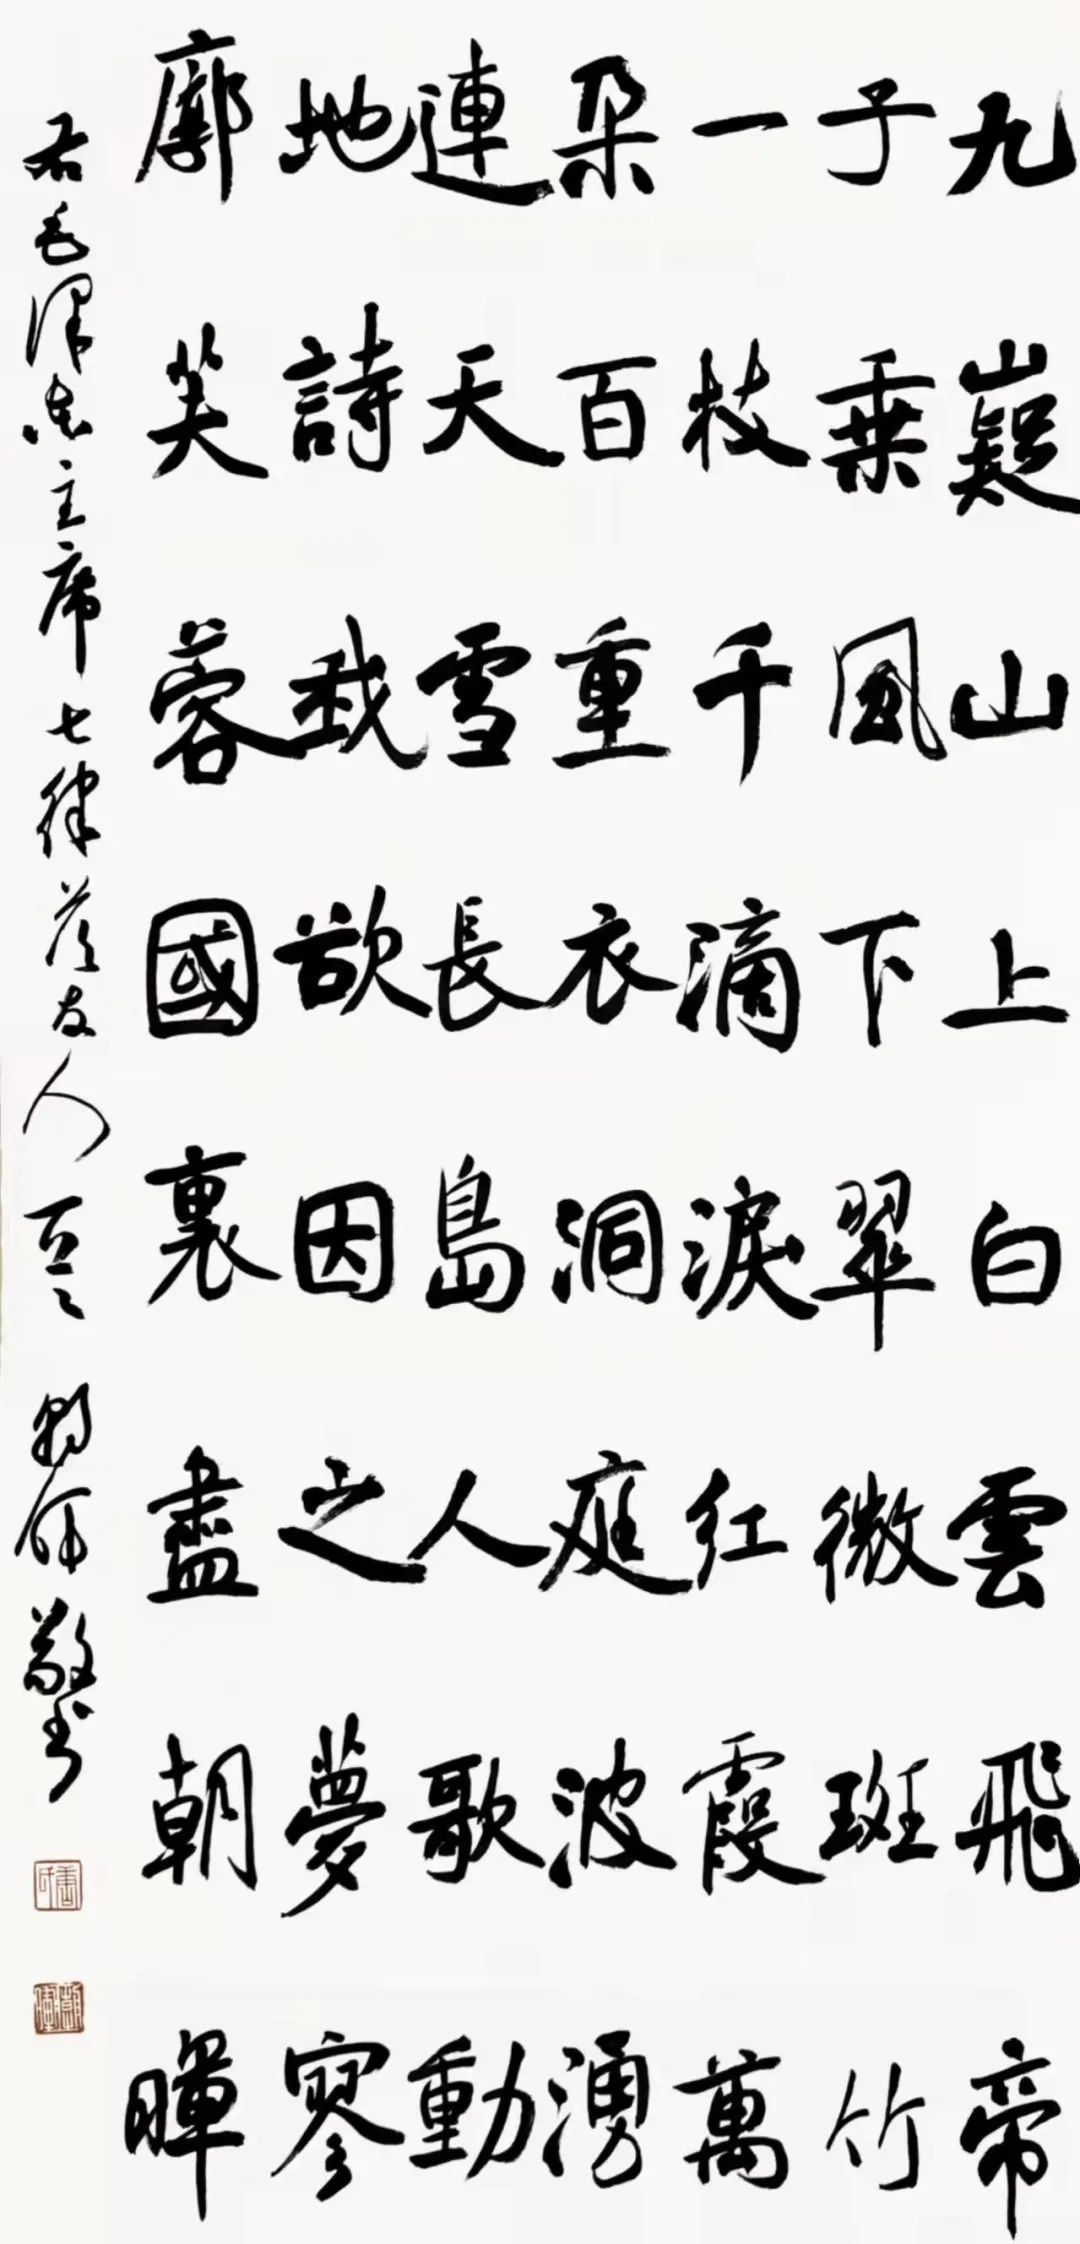 九嶷山上白雲飛帝
子乘風下翠微斑竹
一枝千滴淚红霞萬
朵百重衣洞庭波湧
連天雪長島人歌動
地詩我欲因之夢寥
廓芙蓉國裏盡朝暉
右毛澤东主席七律答友人一首 敬书